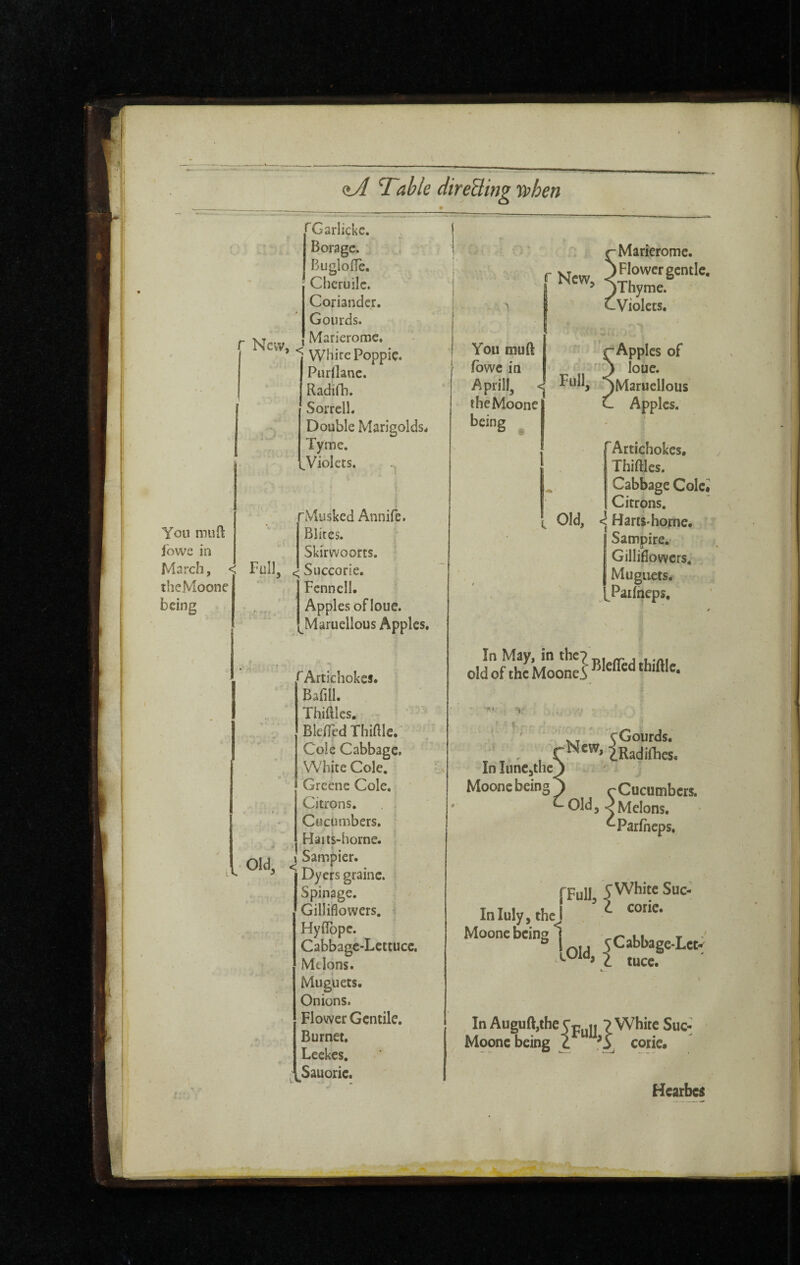 A Table directing when
You must
sowe in
March,
theMoone
being
New,
Garlicke.
Borage.
Buglosse.
Cheruile.
Coriander.
Gourds.
Marierome.
White Poppie.
Purslane.
Radish.
Sorrell.
Double Marigolds.
Tyme.
Violets.
Full,
Musked Annise.
Blites.
Skirwoorts.
Succorie.
Fennell.
Apples of loue.
Maruellous Apples.
Old,
Artichokes.
Basill.
Thistles.
Blessed Thistle.
Cole Cabbage.
White Cole.
Greene Cole.
Citrons.
Cucumbers.
Harts-horne.
Sampier.
Dyers graine.
Spinage.
Gilliflowers.
Hyssope.
Cabbage-Lettuce.
Melons.
Muguets.
Onions.
Flower Gentile.
Burnet.
Leekes.
Sauorie.
You must
sowe in
Aprill,
theMoone
being
New,
Marierome.
Flower gentle.
Thyme.
Violets.
Full,
Apples of
loue.
Maruellous
Apples.
Old,
Artichokes.
Thistles.
Cabbage Cole.
Citrons.
Harts-horne.
Sampire.
Gilliflowers.
Muguets.
Parsneps.
In May, in the
old of the Moone
Blessed thistle.
In Iune,the
Moone being
New,
Gourds.
Radishes.
Old,
Cucumbers.
Melons.
Parsneps.
In Iuly, the
Moone being
Full,
White Suc-
corie.
Old,
Cabbage-Let-
tuce.
In August,the
Moone being
Full,
White Suc-
corie.
Hearbes